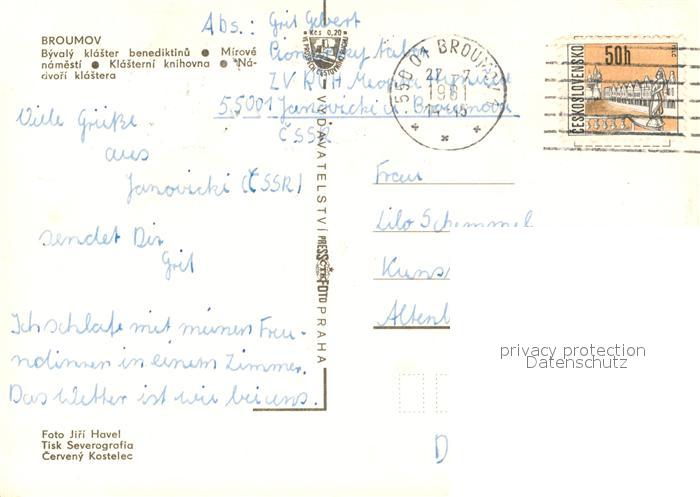 BROUMOV
Bývalý klášter benediktinů ● Mírové
náměstí ● Klášterní knihovna ● Ná-
dvoří kláštera
Kčs 0,20
Abs.: Grit Gebert
Pionýrský tábor
ZV ROH
55001 Janovičky u. Broumova
ČSSR
550 01 BROUMOV
27. 7.
1981
ČESKOSLOVENSKO
50h
Viele Grüße
aus
Janovicki (ČSSR)
sendet Dir
Grit
Ich schlafe mit meinen Freu-
ndinnen in einem Zimmer.
Das Wetter ist wie bei uns.
VYDAVATELSTVÍ PRESSFOTO PRAHA
Frau
Lilo Schimmel
Kuns
Altenb
D
privacy protection
Datenschutz
Foto Jiří Havel
Tisk Severografia
Červený Kostelec